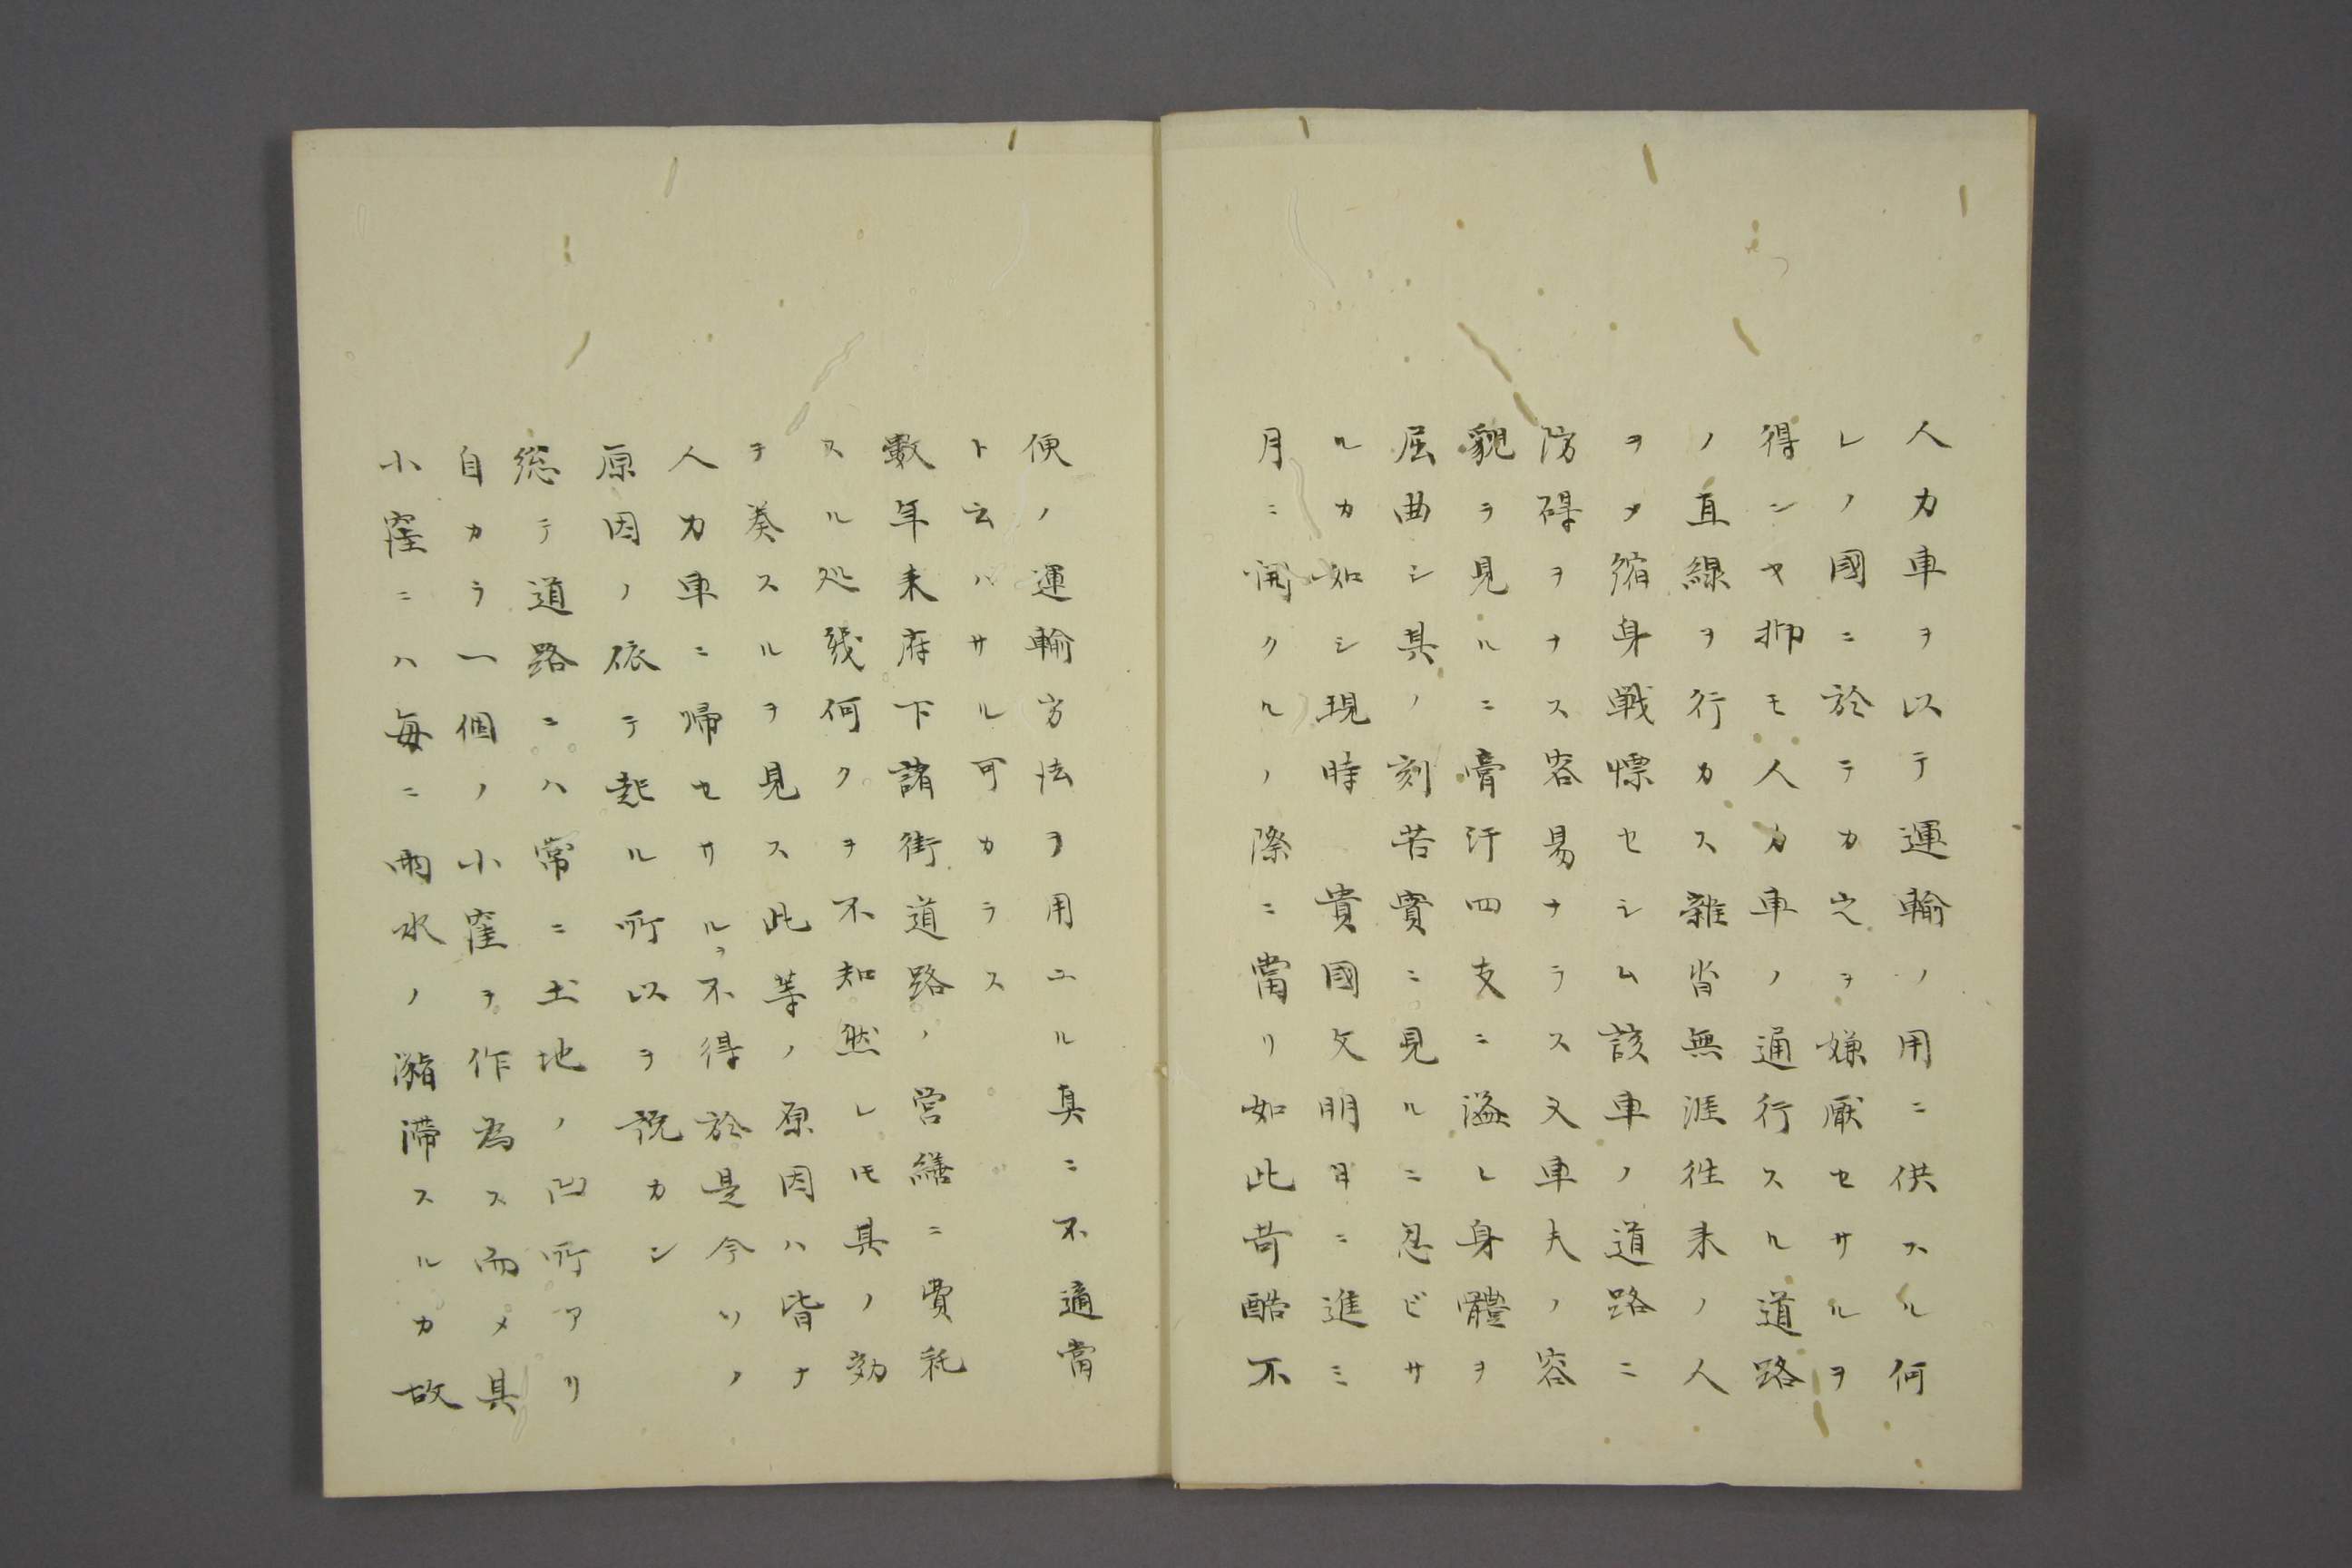 人力車ヲ以テ運輸ノ用ニ供スル何
レノ國ニ於テカ之ヲ嫌厭セサルヲ
得ンヤ抑モ人力車ノ通行スル道路
ノ直線ヲ行カス雜沓無涯往来ノ人
ヲメ縮身戦慄セシム該車ノ道路ニ
防碍ヲナス容易ナラス又車夫ノ容
貌ラ見ルニ膏汗四支ニ溢レ身體ヲ
屈曲シ其ノ刻苦實ニ見ルニ忍ビサ
ルカ如シ現時 貴國文明日ニ進ミ
月ニ開クルノ際ニ當リ如此苛酷不
便ノ運輸方法ヲ用ユル真ニ不適當
ト云ハサル可カラス
數年来府下諸街道路ノ営繕ニ費耗
スル処幾何クヲ不知然レ𪜈其ノ効
ヲ奏スルヲ見ス此等ノ原因ハ皆ナ
人力車ニ帰セサルヲ不得於是今ソノ
原因ノ依テ起ル所以ヲ説カン
総テ道路ニハ常ニ土地ノ凹所アリ
自カラ一個ノ小窪ヲ作為ス而メ其
小窪ニハ毎ニ雨水ノ瀦滞スルカ故